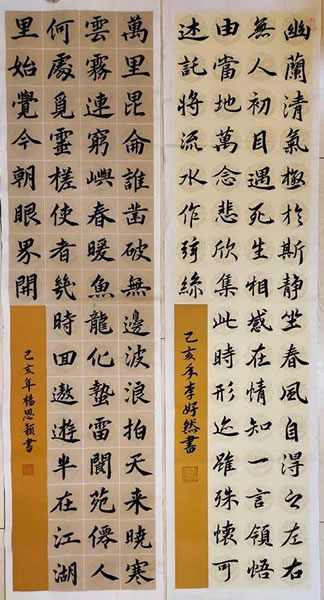 幽蘭清氣極於斯靜坐春風自得之左右
無人初目遇死生相感在情知一言領悟
由當地萬念悲欣集此時形迹雖殊懷可
述託將流水作絃絲
己亥年李好然書
萬里昆侖誰凿破無邊波浪拍天来曉寒
雲霧連窮嶼春暖魚龍化蟄雷閬苑僊人
何處覓靈槎使者幾時回遨遊半在江湖
里始覺今朝眼界開
己亥年楊思穎書